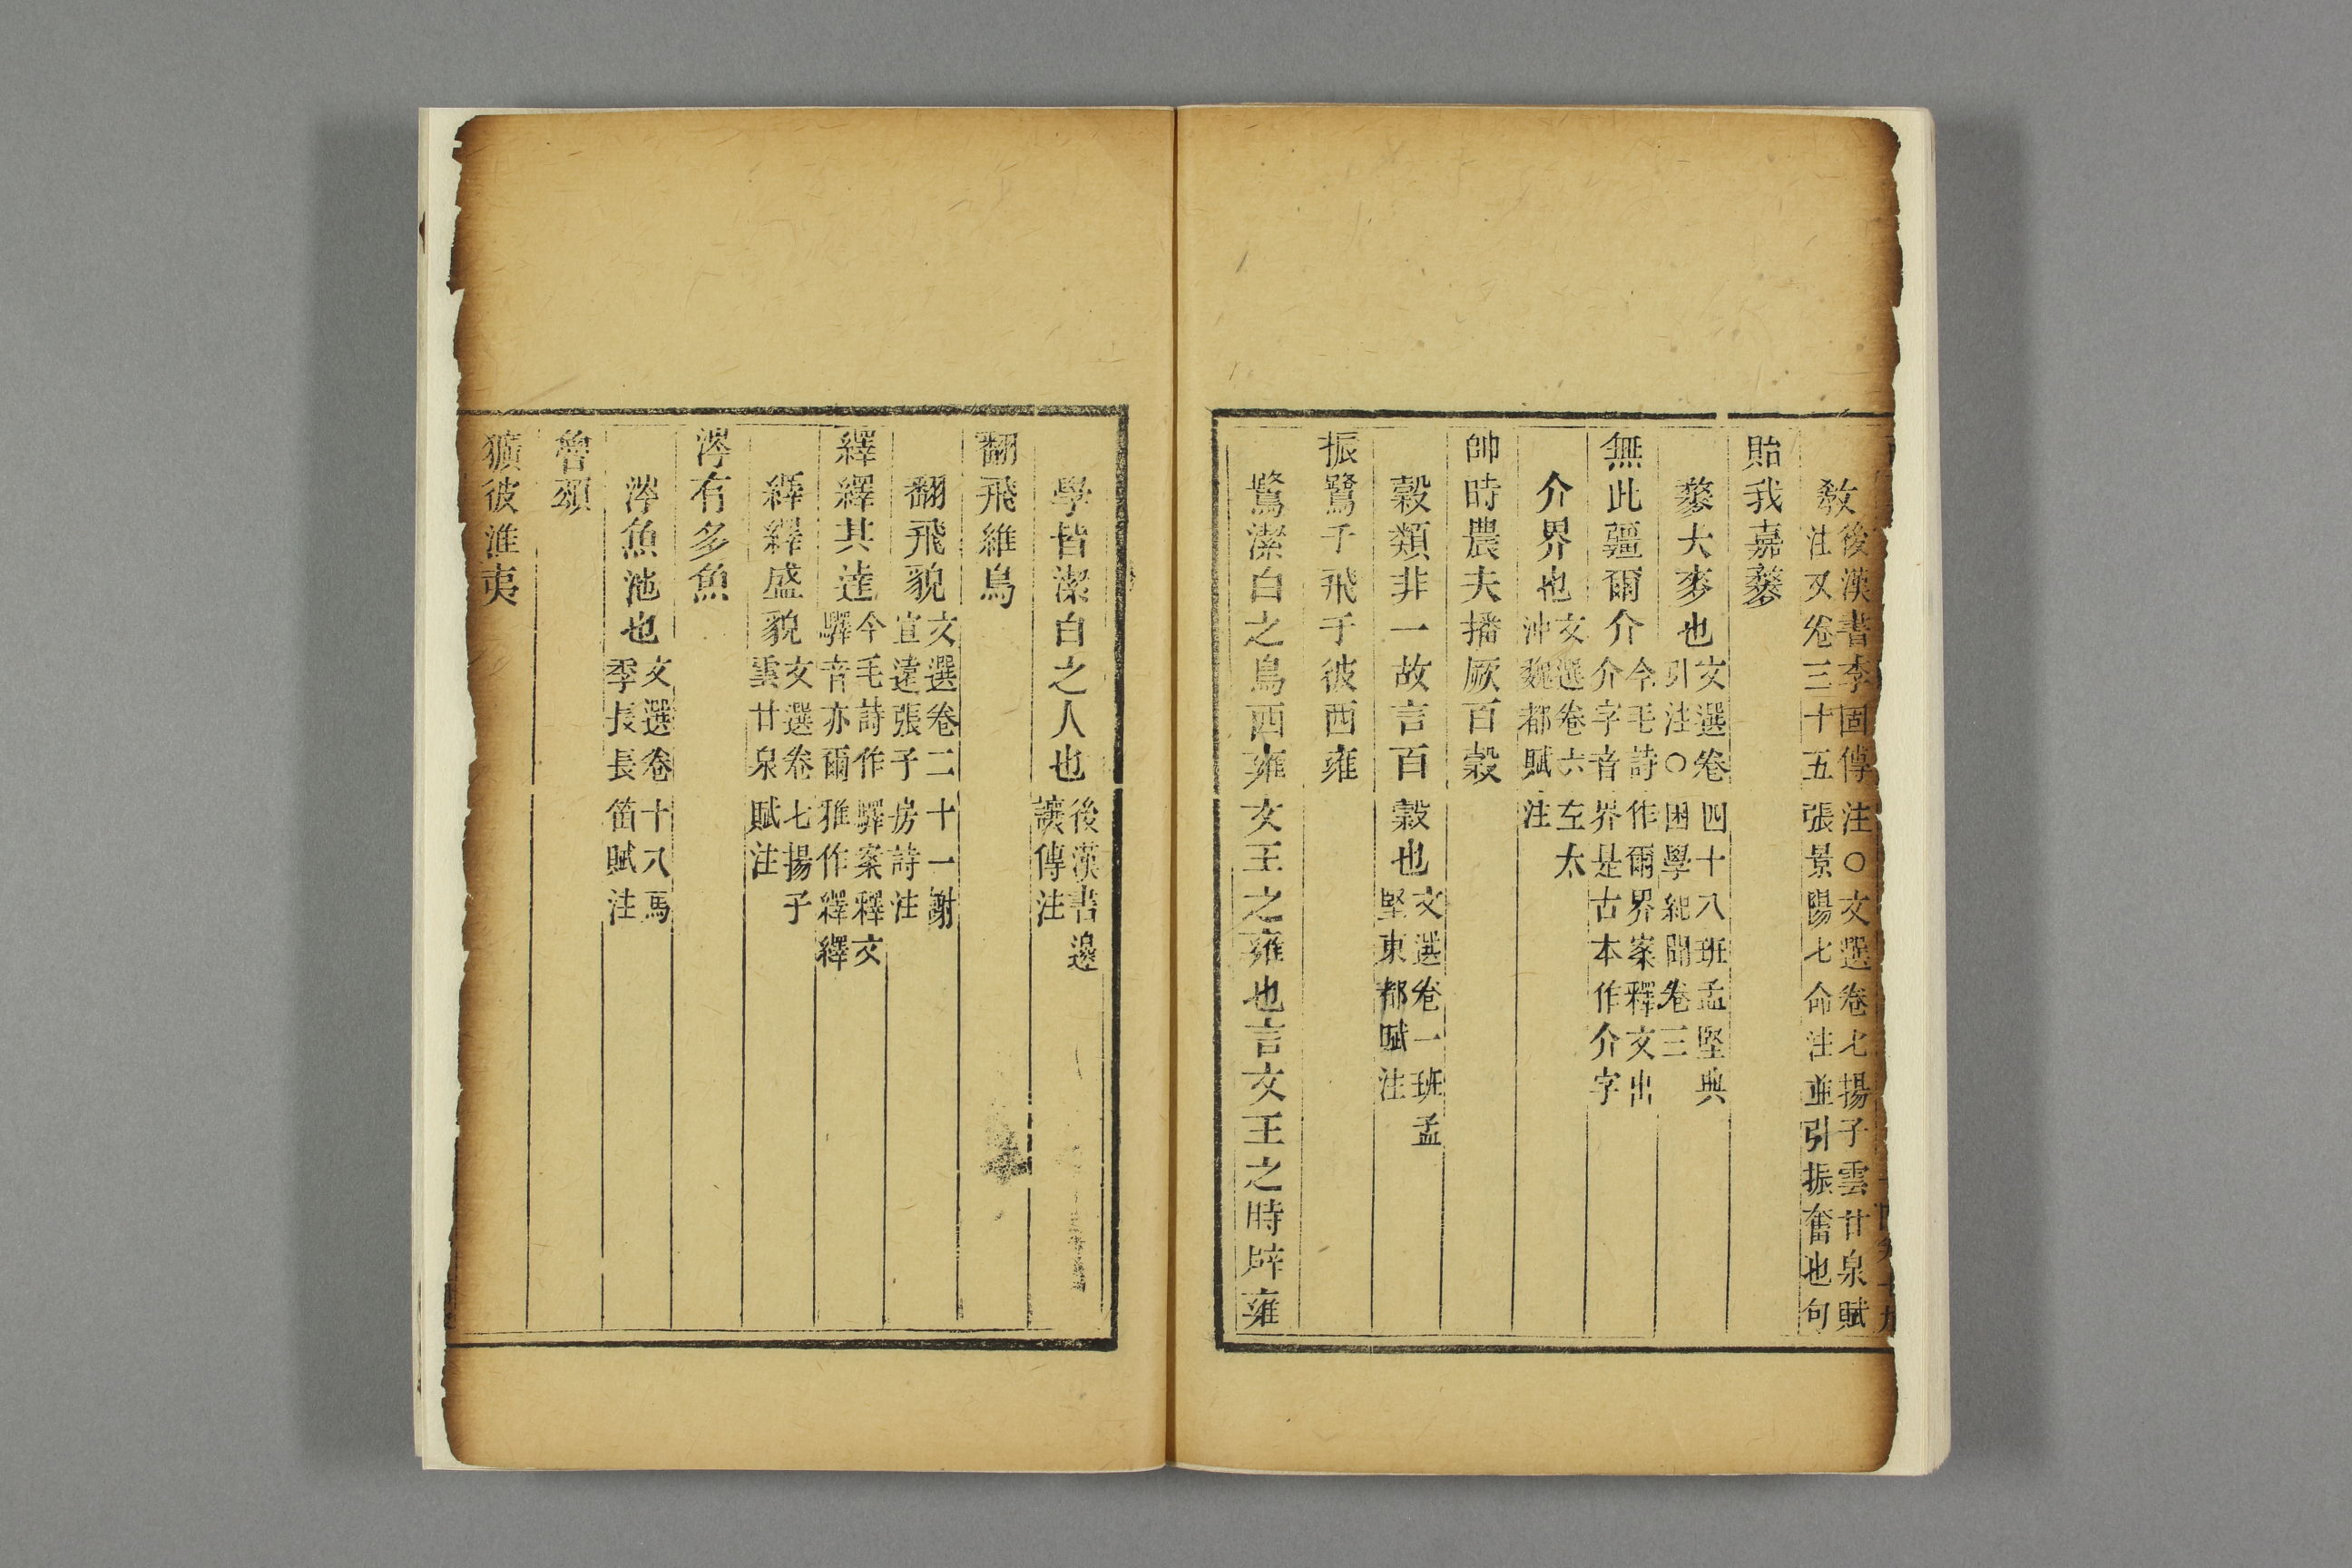 敎後漢書李固傳注○文選卷七揚子雲甘泉賦
注又卷三十五張景陽七命注並引振奮也句
貽我嘉䵄
䵄大麥也文選卷四十八班孟堅典
引注○困學紀聞卷三
無此疆爾介今毛詩作爾界案釋文出
介字音界是古本作介字
介界也文選卷六左太
沖魏都賦注
帥時農夫播厥百穀
穀類非一故言百穀也文選卷一班孟
堅東都賦注
振鷺于飛于彼西雍
鷺潔白之鳥西雍文王之雍也言文王之時辟雍
學皆潔白之人也後漢書邊
讓傳注
翻飛維鳥
翻飛貌文選卷二十一謝
宣遠張子房詩注
繹繹其達今毛詩作驛案釋文
驛音亦爾雅作繹繹
繹繹盛貌文選卷七揚子
雲甘泉賦注
涔有多魚
涔魚池也文選卷十八馬
季長長笛賦注
魯頌
獷彼淮夷